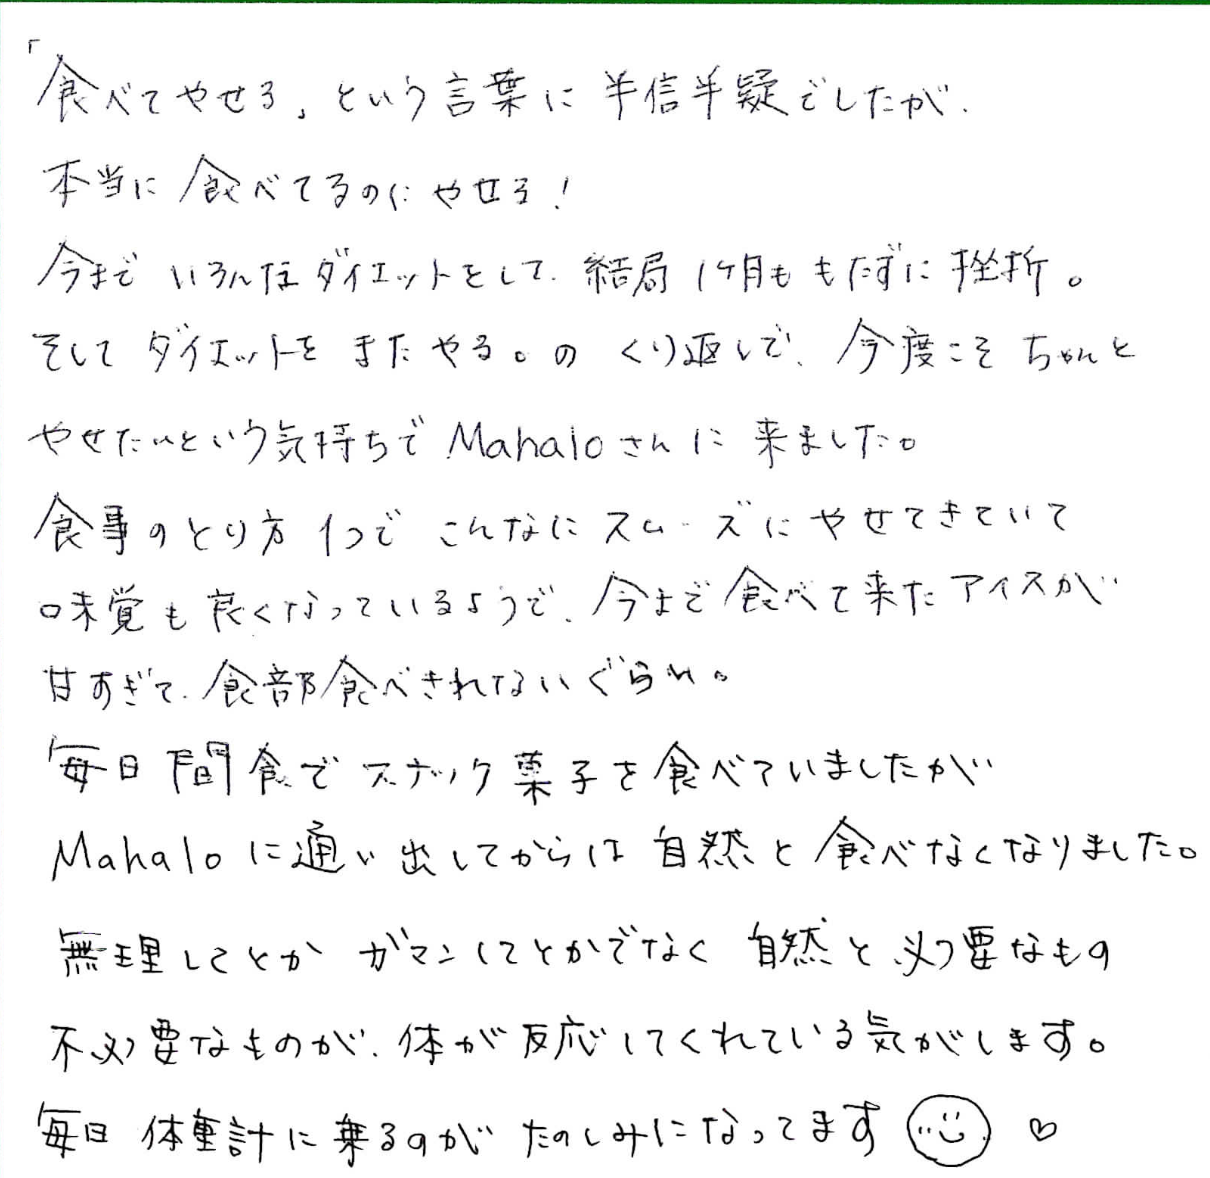 「食べてやせる」という言葉に半信半疑でしたが、
本当に食べてるのにやせる!
今までいろんなダイエットをして、結局1ケ月ももたずに挫折。
そしてダイエットをまたやる。のくり返しで、今度こそちゃんと
やせたいという気持ちでMahaloさんに来ました。
食事のとり方1つでこんなにスムーズにやせてきていて
味覚も良くなっているようで、今まで食べて来たアイスが
甘すぎて、食部食べきれないぐらい。
毎日間食でスナック菓子を食べていましたが
Mahaloに通い出してからは自然と食べなくなりました。
無理してとかガマンしてとかでなく自然と必要なもの
不必要なものが、体が反応してくれている気がします。
毎日体重計に乗るのがたのしみになってます☺♡